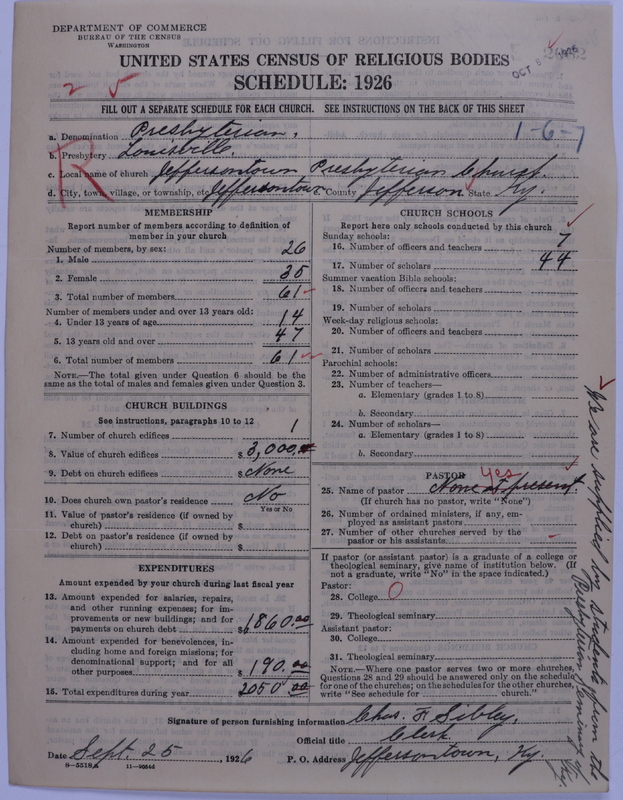 DEPARTMENT OF COMMERCE
BUREAU OF THE CENSUS
WASHINGTON
UNITED STATES CENSUS OF RELIGIOUS BODIES
SCHEDULE: 1926
OCT 1926
2 ✓
FILL OUT A SEPARATE SCHEDULE FOR EACH CHURCH. SEE INSTRUCTIONS ON THE BACK OF THIS SHEET
R
1-6-7
a. Denomination Presbyterian.
b. Presbytery Louisville.
c. Local name of church Jeffersontown Presbyterian Church.
d. City, town, village, or township, etc. Jeffersontown e. County Jefferson State Ky.
MEMBERSHIP
Report number of members according to definition of
member in your church
Number of members, by sex:
1. Male 26
2. Female 35
3. Total number of members 61
Number of members under and over 13 years old:
4. Under 13 years of age 14
5. 13 years old and over 47
6. Total number of members 61
NOTE.—The total given under Question 6 should be the
same as the total of males and females given under Question 3.
CHURCH BUILDINGS
See instructions, paragraphs 10 to 12
7. Number of church edifices 1
8. Value of church edifices $ 3,000.
9. Debt on church edifices $ None
10. Does church own pastor's residence No
Yes or No
11. Value of pastor's residence (if owned by
church) $
12. Debt on pastor's residence (if owned by
church) $
EXPENDITURES
Amount expended by your church during last fiscal year
13. Amount expended for salaries, repairs,
and other running expenses; for im-
provements or new buildings; and for
payments on church debt $ 1860.00
14. Amount expended for benevolences, in-
cluding home and foreign missions; for
denominational support; and for all
other purposes $ 190.00
15. Total expenditures during year 2050.00
CHURCH SCHOOLS
Report here only schools conducted by this church
Sunday schools:
16. Number of officers and teachers 7
17. Number of scholars 44
Summer vacation Bible schools:
18. Number of officers and teachers
19. Number of scholars
Week-day religious schools:
20. Number of officers and teachers
21. Number of scholars
Parochial schools:
22. Number of administrative officers
23. Number of teachers—
a. Elementary (grades 1 to 8)
b. Secondary
24. Number of scholars—
a. Elementary (grades 1 to 8)
b. Secondary
PASTOR
Yes
25. Name of pastor None at present.
(If church has no pastor, write "None")
26. Number of ordained ministers, if any, em-
ployed as assistant pastors
27. Number of other churches served by the
pastor or his assistants
If pastor (or assistant pastor) is a graduate of a college or
theological seminary, give name of institution below. (If
not a graduate, write "No" in the space indicated.)
Pastor:
28. College 0
29. Theological seminary
Assistant pastor:
30. College
31. Theological seminary
NOTE.—Where one pastor serves two or more churches,
Questions 28 and 29 should be answered only on the schedule
for one of the churches; on the schedules for the other churches,
write "See schedule for church."
We are supplied by students from the
Presbyterian Seminary of Ky.
Signature of person furnishing information Chas. F. Sibley.
Official title Clerk.
Date Sept. 25, 1926 P. O. Address Jeffersontown, Ky.